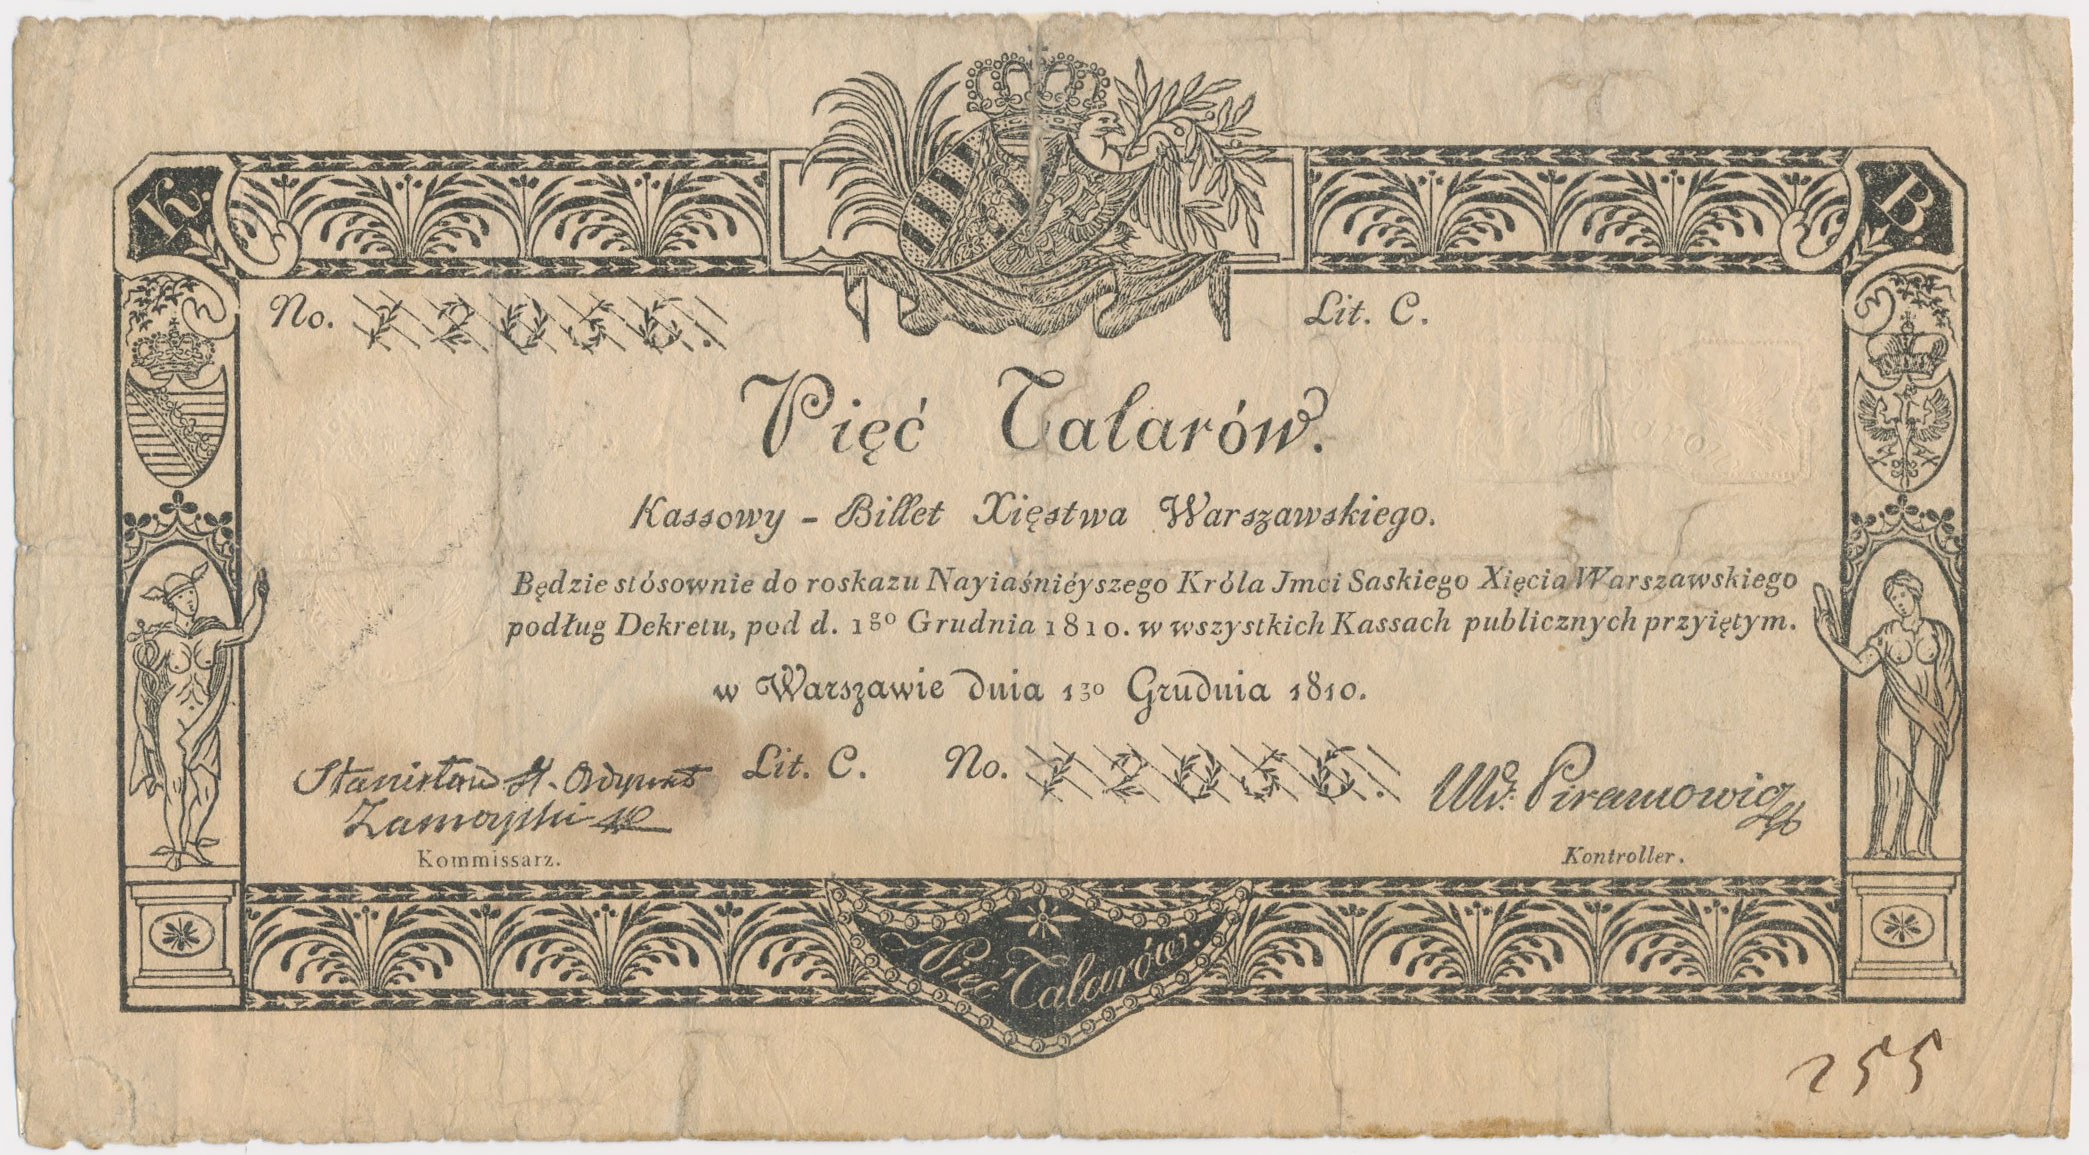 K. B.
No. 12056. Lit. C.
Pięć Talarów.
Kassowy - Billet Xięstwa Warszawskiego.
Będzie stósownie do roskazu Nayiaśniéyszego Króla Jmci Saskiego Xięcia Warszawskiego
podług Dekretu, pod d. 1go Grudnia 1810. w wszystkich Kassach publicznych przyiętym.
w Warszawie dnia 1go Grudnia 1810.
Lit. C. No. 12056.
Stanisław H. Ordynat
Zamoyski
Kommissarz.
Piramowicz
Kontroller.
Pięć Talarów.
255